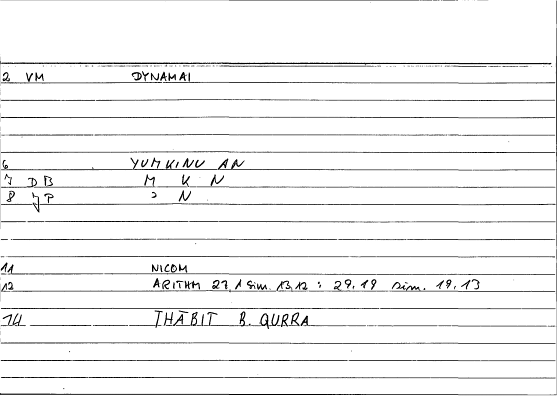 2 VM DYNAMAI
6 YUMKINU AN
7 DB M K N
8 JP ʾ N
11 NICOM
12 ARITHM 27,1 sim. 13,12 : 29,19 sim. 19,13
14 THĀBIT B. QURRA